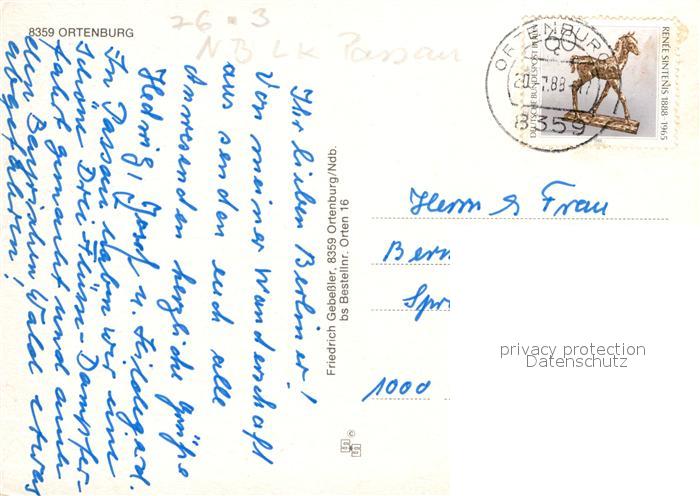 8359 ORTENBURG
26 - 3
NB LK Passau
Ihr lieben Berliner!
Von meiner Wanderschaft
aus senden euch alle
Anwesenden herzliche Grüße
Hedwig, u. Hildegard.
In Passau haben wir eine
schöne Drei-Flüsse-Dampfer-
fahrt gemacht und auch
den Bayrischen Wald etwas
abgefahren!
Friedrich Gebeßler, 8359 Ortenburg/Ndb.
bs Bestellnr. Orten 16
ORTENBURG
20. 7.88
8359
60
DEUTSCHE BUNDESPOST BERLIN
RENÉE SINTENIS 1888-1965
Herrn & Frau
Bern
Spr
1000
privacy protection
Datenschutz